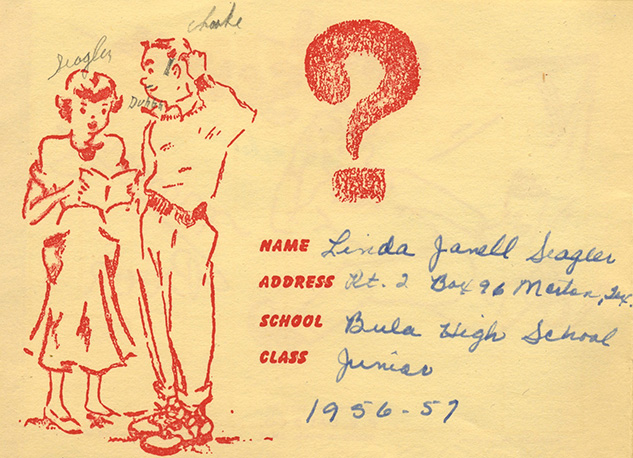 Seagler
?
NAME Linda Janell Seagler
ADDRESS Rt. 2 Box 96 Morton, Tex.
SCHOOL Bula High School
CLASS Junior
1956-57